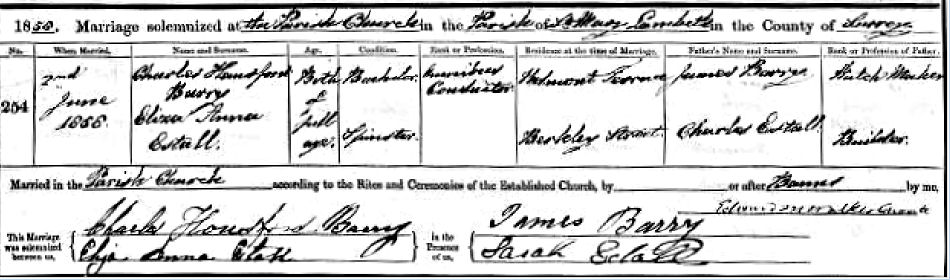 1855. Marriage solemnized at the Parish Church in the Parish of St Mary Lambeth in the County of Surrey
No. When Married. Name and Surname. Age. Condition. Rank or Profession. Residence at the time of Marriage. Father's Name and Surname. Rank or Profession of Father.
254 2nd Charles Hansford Both Bachelor Omnibus Belmont Terrace James Barry Maker
June Barry of Conductor
1855 Eliza Anna full Spinster. Berkley Street. Charles Estall. Builder.
Estall. age.
Married in the Parish Church according to the Rites and Ceremonies of the Established Church, by or after Banns by me,
Edward
This Marriage was solemnized between us, Charles Barry in the Presence of us, James Barry
Eliza Anna Estall Sarah Estall